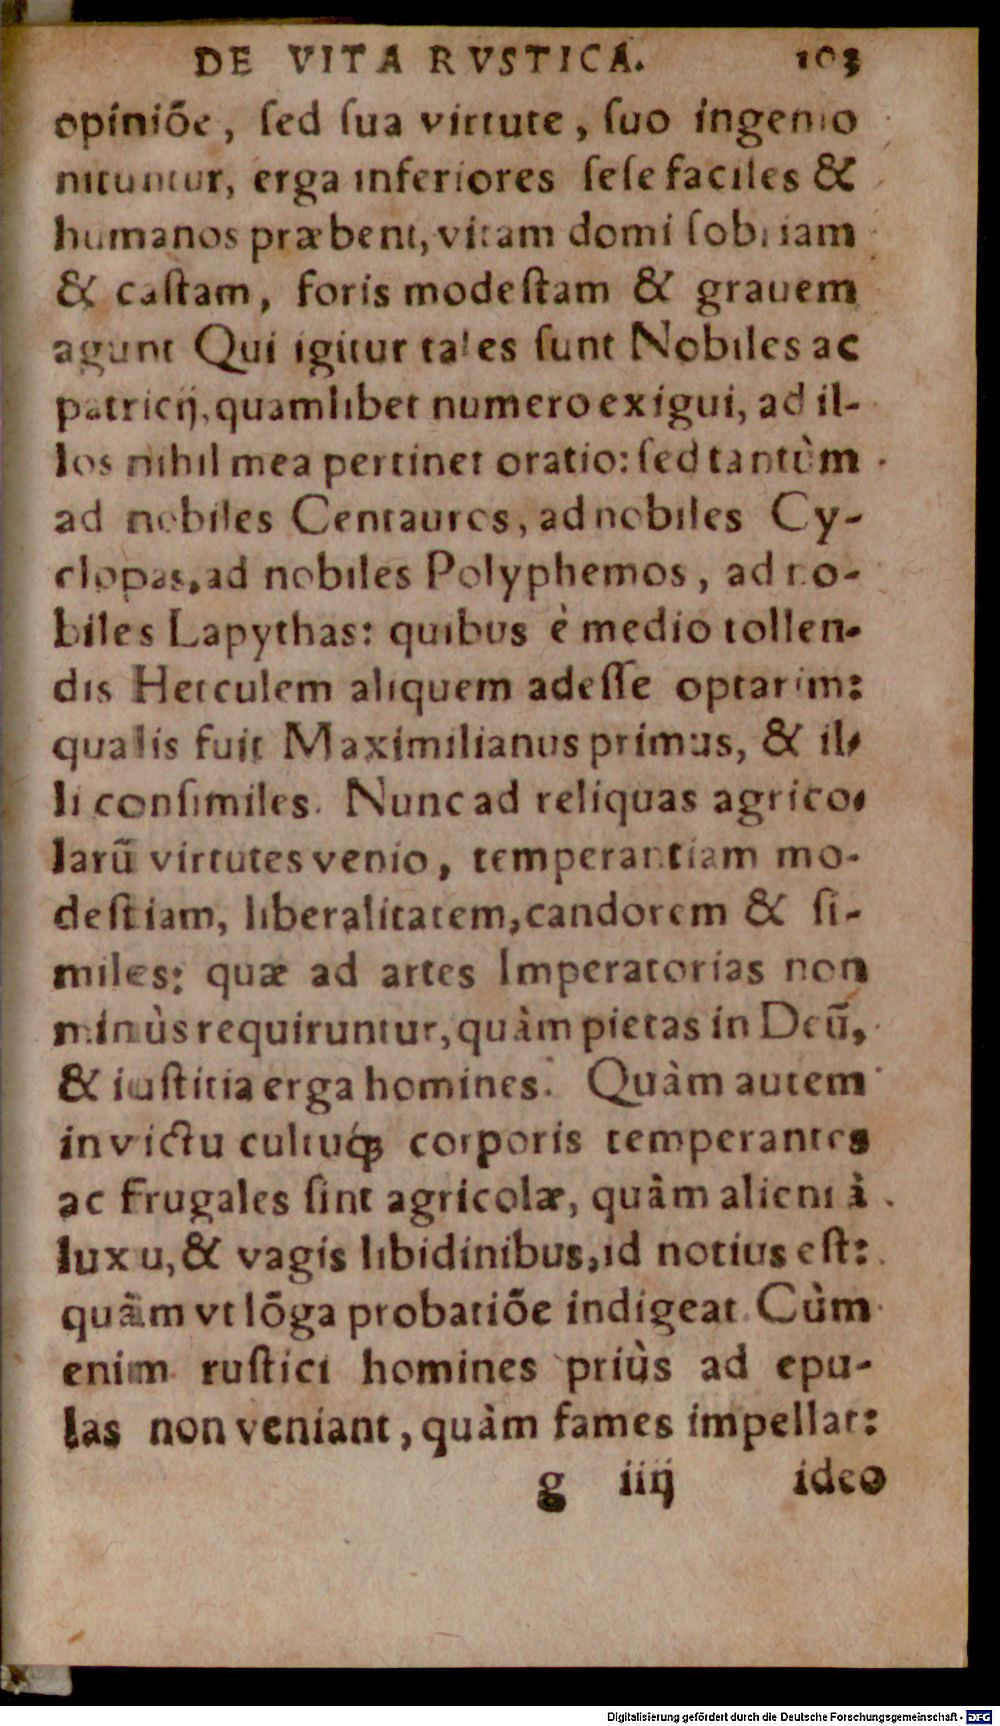 DE VITA RVSTICA. 103
opiniõe, ſed ſua virtute, ſuo ingenio
nituntur, erga inferiores ſeſe faciles &
humanos præbent, vitam domi ſobriam
& caſtam, foris modeſtam & grauem
agunt Qui igitur tales ſunt Nobiles ac
patricij, quamlibet numero exigui, ad il-
los nihil mea pertinet oratio: ſed tantùm
ad nobiles Centauros, ad nobiles Cy-
clopas, ad nobiles Polyphemos, ad no-
biles Lapythas: quibus è medio tollen-
dis Herculem aliquem adeſſe optarim:
qualis fuit Maximilianus primus, & il-
li conſimiles. Nunc ad reliquas agrico-
larũ virtutes venio, temperantiam mo-
deſtiam, liberalitatem, candorem & ſi-
miles: quæ ad artes Imperatorias non
minùs requiruntur, quàm pietas in Deũ,
& iuſtitia erga homines. Quàm autem
in victu cultuq́; corporis temperantes
ac frugales ſint agricolæ, quàm alieni à
luxu, & vagis libidinibus, id notius eſt:
quàm vt lõga probatiõe indigeat. Cùm
enim ruſtici homines priùs ad epu-
las non veniant, quàm fames impellat:
g iiij ideo
Digitalisierung gefördert durch die Deutsche Forschungsgemeinschaft - DFG